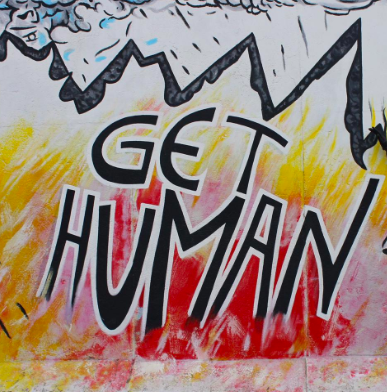 GET
HUMAN